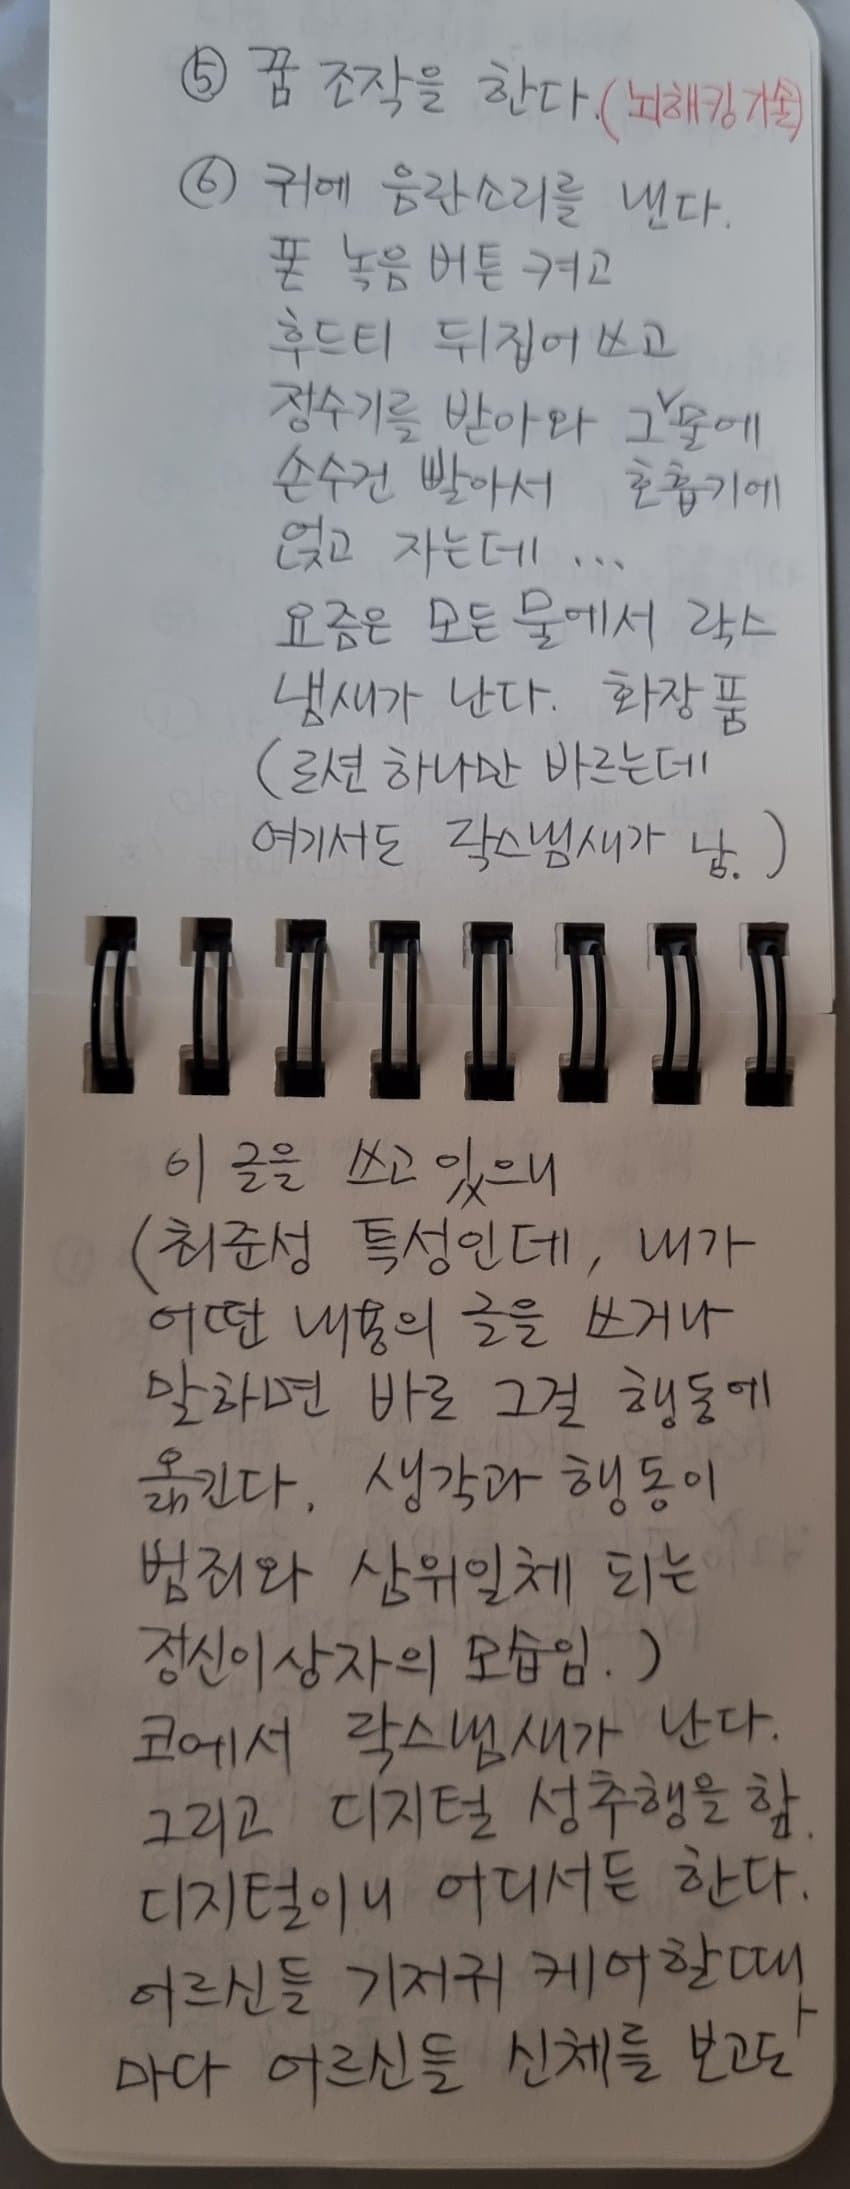 ⑤ 꿈 조작을 한다.(뇌해킹기술)
⑥ 귀에 음란소리를 낸다.
폰 녹음버튼 켜고
후드티 뒤집어쓰고
정수기를 받아와 그∨물에
손수건 빨아서 호흡기에
얹고 자는데 ...
요즘은 모든 물에서 락스
냄새가 난다. 화장품
(로션 하나만 바르는데
여기서도 락스냄새가 남.)
이 글을 쓰고 있으니
(최준성 특성인데, 내가
어떤 내용의 글을 쓰거나
말하면 바로 그걸 행동에
옮긴다. 생각과 행동이
범죄와 삼위일체 되는
정신이상자의 모습임.)
코에서 락스냄새가 난다.
그리고 디지털 성추행을 함.
디지털이니 어디서든 한다.
어르신들 기저귀 케어할때
마다 어르신들 신체를 보고도